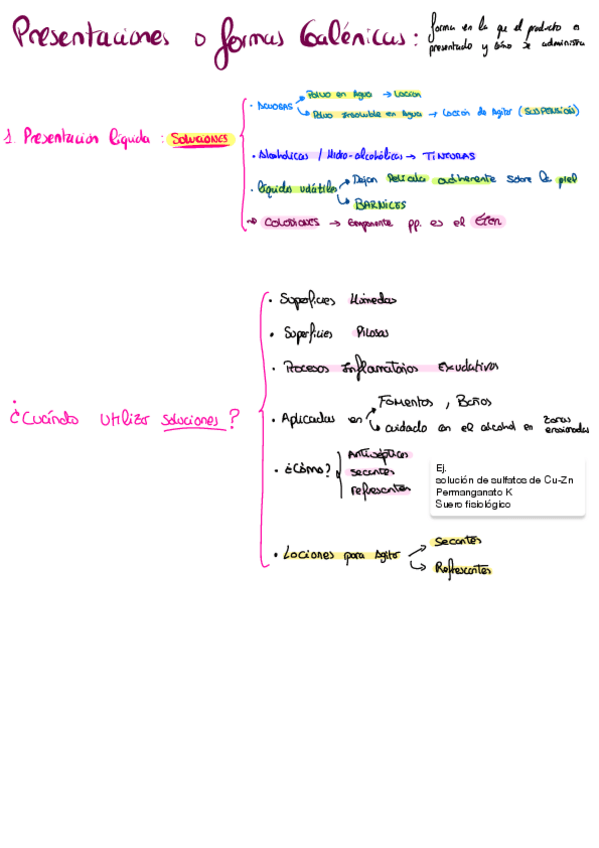 Presentaciones o formas Galénicas :
forma en la que el producto es
presentado y cómo se administra
1. Presentación líquida : SOLUCIONES
• ACUOSAS
Polvo en Agua → Loción
Polvo insoluble en Agua → Loción de Agitar (SUSPENSIÓN)
• Alcohólicas / Hidro-alcohólicas → TINTURAS
• líquidos volátiles
Dejan Película adherente sobre la piel
BARNICES
→ COLODIONES → Componente pp. es el Éter
¿Cuándo utilizar soluciones?
• Superficies Húmedas
• Superficies Pilosas
• Procesos Inflamatorios Exudativos
• Aplicadas en
Fomentos, Baños
cuidado con el alcohol en zonas
erosionadas
• ¿Cómo?
Antisépticos
secantes
refrescantes
Ej.
solución de sulfatos de Cu-Zn
Permanganato K
Suero fisiológico
• Lociones para Agitar
Secantes
Refrescantes